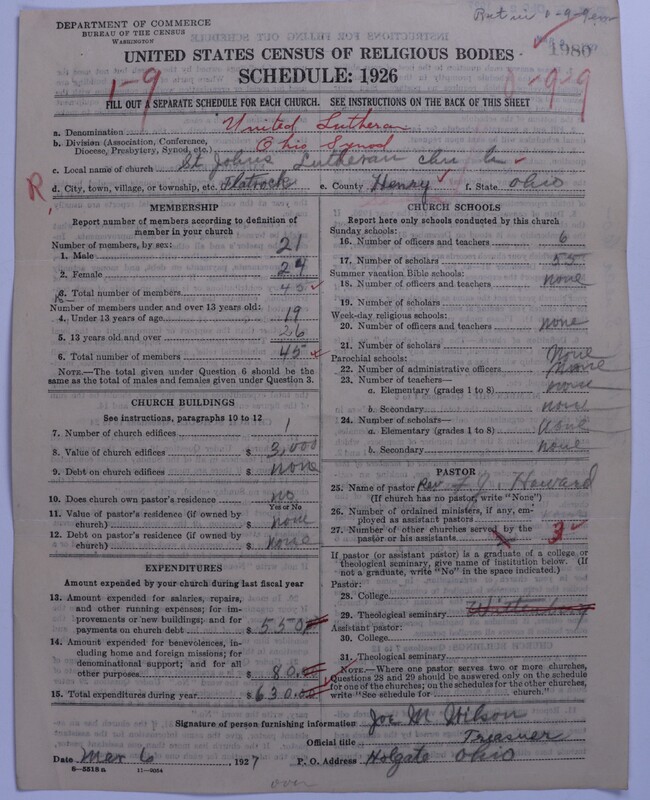 DEPARTMENT OF COMMERCE
BUREAU OF THE CENSUS
WASHINGTON
UNITED STATES CENSUS OF RELIGIOUS BODIES
SCHEDULE: 1926
1-9
1-929
FILL OUT A SEPARATE SCHEDULE FOR EACH CHURCH. SEE INSTRUCTIONS ON THE BACK OF THIS SHEET
a. Denomination United Lutheran
b. Division (Association, Conference, Diocese, Presbytery, Synod, etc.) Ohio Synod
c. Local name of church St Johns Lutheran
R. d. City, town, village, or township, etc. Flatrock e. County Henry f. State Ohio
MEMBERSHIP
Report number of members according to definition of member in your church
Number of members, by sex:
1. Male 21
2. Female 24
3. Total number of members 45
Number of members under and over 13 years old:
4. Under 13 years of age 19
5. 13 years old and over 26
6. Total number of members 45
NOTE.—The total given under Question 6 should be the same as the total of males and females given under Question 3.
CHURCH BUILDINGS
See instructions, paragraphs 10 to 12
7. Number of church edifices 1
8. Value of church edifices $ 3,000
9. Debt on church edifices $ none
10. Does church own pastor's residence no
Yes or No
11. Value of pastor's residence (if owned by church) $ none
12. Debt on pastor's residence (if owned by church) $ none
EXPENDITURES
Amount expended by your church during last fiscal year
13. Amount expended for salaries, repairs, and other running expenses; for improvements or new buildings; and for payments on church debt $ 550
14. Amount expended for benevolences, including home and foreign missions; for denominational support; and for all other purposes $ 80.
15. Total expenditures during year $ 630.
CHURCH SCHOOLS
Report here only schools conducted by this church
Sunday schools:
16. Number of officers and teachers 6
17. Number of scholars 55
Summer vacation Bible schools:
18. Number of officers and teachers none
19. Number of scholars
Week-day religious schools:
20. Number of officers and teachers none
21. Number of scholars None
Parochial schools:
22. Number of administrative officers None
23. Number of teachers—
a. Elementary (grades 1 to 8) none
b. Secondary none
24. Number of scholars—
a. Elementary (grades 1 to 8) None
b. Secondary none
PASTOR
25. Name of pastor Rev Howard
(If church has no pastor, write "None")
26. Number of ordained ministers, if any, employed as assistant pastors
27. Number of other churches served by the pastor or his assistants 3
If pastor (or assistant pastor) is a graduate of a college or theological seminary, give name of institution below. (If not a graduate, write "No" in the space indicated.)
Pastor:
28. College
29. Theological seminary Wittenberg
Assistant pastor:
30. College
31. Theological seminary
NOTE.—Where one pastor serves two or more churches, Questions 28 and 29 should be answered only on the schedule for one of the churches; on the schedules for the other churches, write "See schedule for church."
Signature of person furnishing information Joe M Wilson
Official title Treasurer
Date Mar 6 1927 P. O. Address Holgate Ohio
8-5518 a 11-9054
over